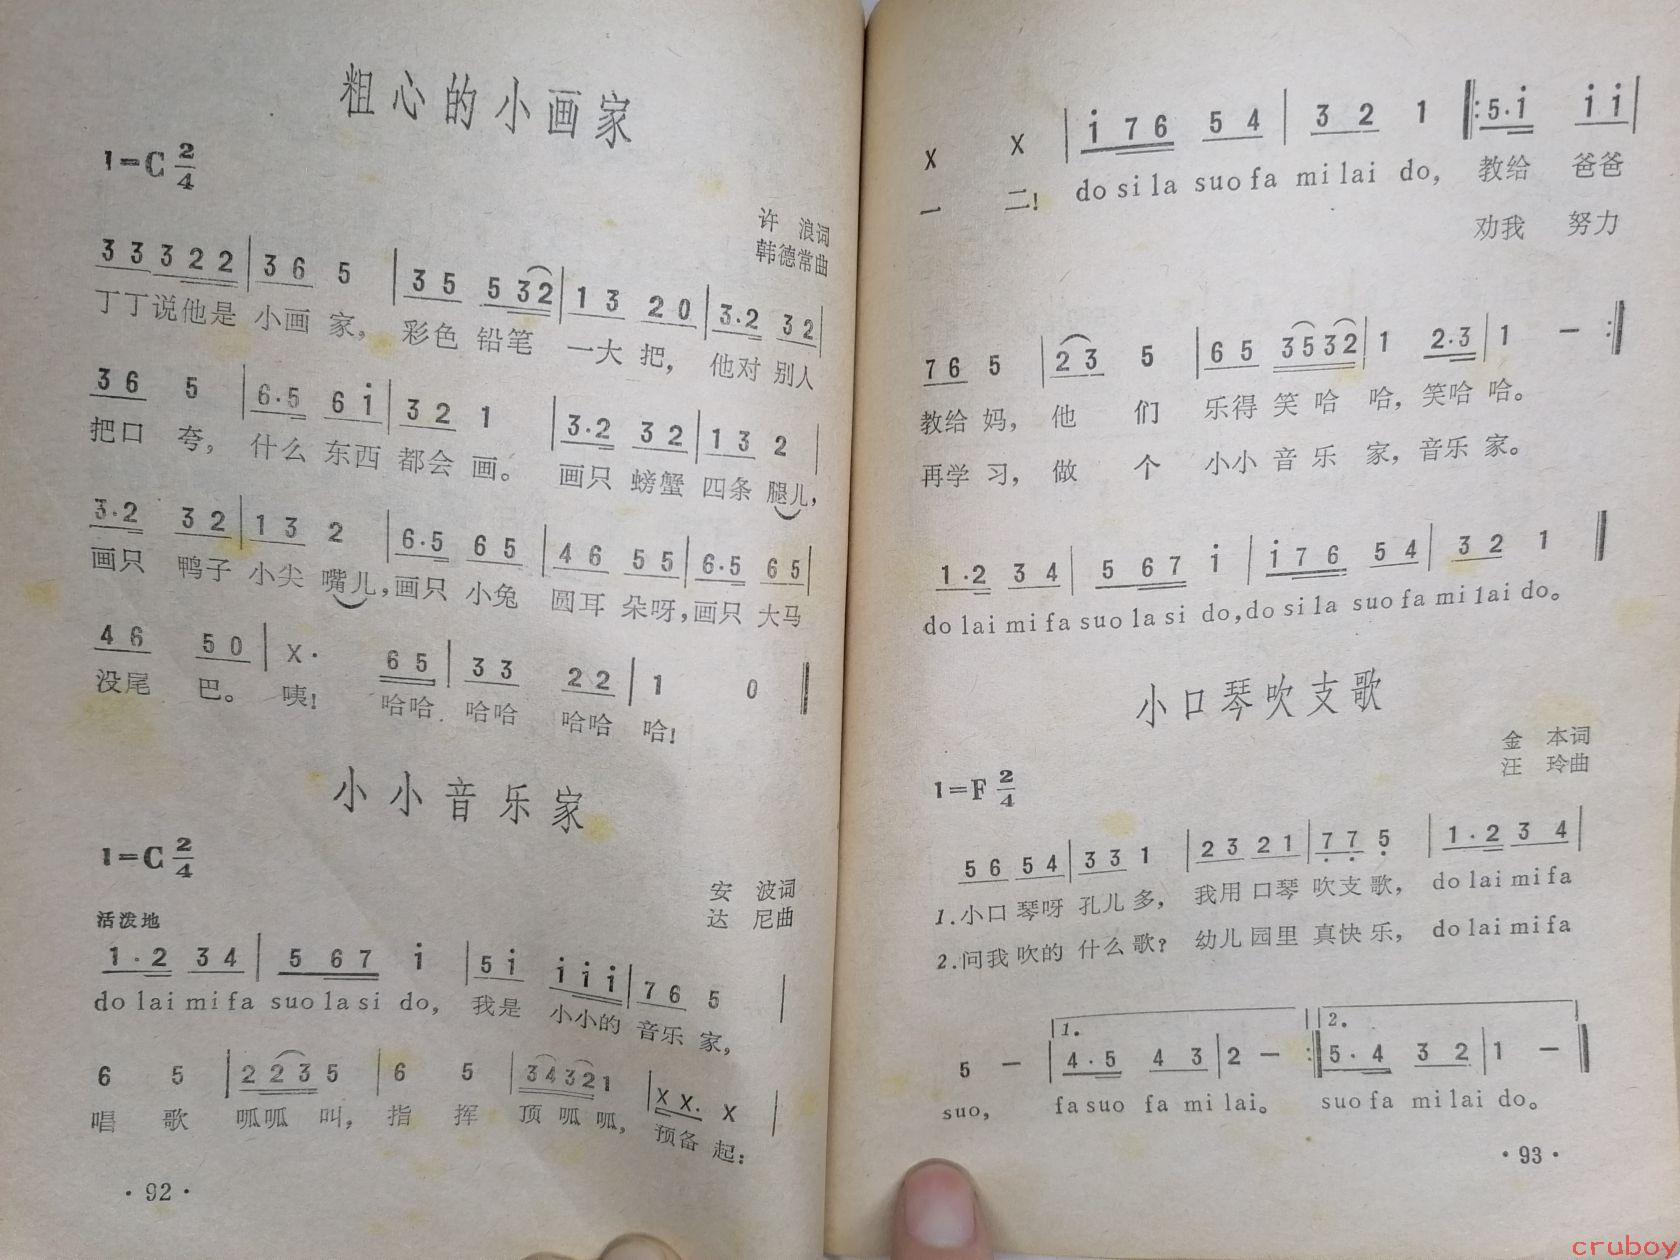 粗心的小画家
1=C 2/4
许 浪词
韩德常曲
3 3 3 2 2 | 3 6 5 | 3 5 5 3 2 | 1 3 2 0 | 3·2 3 2 |
丁丁说他是 小画 家， 彩色 铅笔 一大 把， 他对 别人
3 6 5 | 6·5 6 i̇ | 3 2 1 | 3·2 3 2 | 1 3 2 |
把口 夸， 什么 东西 都会 画。 画只 螃蟹 四条 腿儿，
3·2 3 2 | 1 3 2 | 6·5 6 5 | 4 6 5 5 | 6·5 6 5 |
画只 鸭子 小尖 嘴儿，画只 小兔 圆耳 朵呀，画只 大马
4 6 5 0 | X· 6 5 | 3 3 2 2 | 1 0 ‖
没尾 巴。 咦！ 哈哈 哈哈 哈哈 哈！
小小音乐家
1=C 2/4
安 波词
达 尼曲
活泼地
1·2 3 4 | 5 6 7 i̇ | 5 i̇ i̇ i̇ i̇ | 7 6 5 |
do lai mi fa suo la si do， 我是 小小的 音乐 家，
6 5 | 2 2 3 5 | 6 5 | 3 4 3 2 1 | X X· X |
唱 歌 呱呱 叫， 指 挥 顶 呱 呱， 预备 起：
·92·
X X | i̇ 7 6 5 4 | 3 2 1 ‖: 5·i̇ i̇ i̇ |
一 二！ do si la suo fa mi lai do， 教给 爸爸
劝我 努力
7 6 5 | 2 3 5 | 6 5 3 5 3 2 | 1 2·3 | 1 — :‖
教给 妈， 他 们 乐得 笑 哈 哈，笑哈 哈。
再学 习， 做 个 小小 音 乐 家，音乐 家。
1·2 3 4 | 5 6 7 i̇ | i̇ 7 6 5 4 | 3 2 1 ‖
do lai mi fa suo la si do，do si la suo fa mi lai do。
小口琴吹支歌
金 本词
汪 玲曲
1=F 2/4
5 6 5 4 | 3 3 1 | 2 3 2 1 | 7̣ 7̣ 5̣ | 1·2 3 4 |
1.小口 琴呀 孔儿 多， 我用 口琴 吹支 歌， do lai mi fa
2.问我 吹的 什么 歌？ 幼儿 园里 真快 乐， do lai mi fa
1. 2.
5 — | 4·5 4 3 | 2 — :‖ 5·4 3 2 | 1 — ‖
suo， fa suo fa mi lai。 suo fa mi lai do。
·93·
cruboy